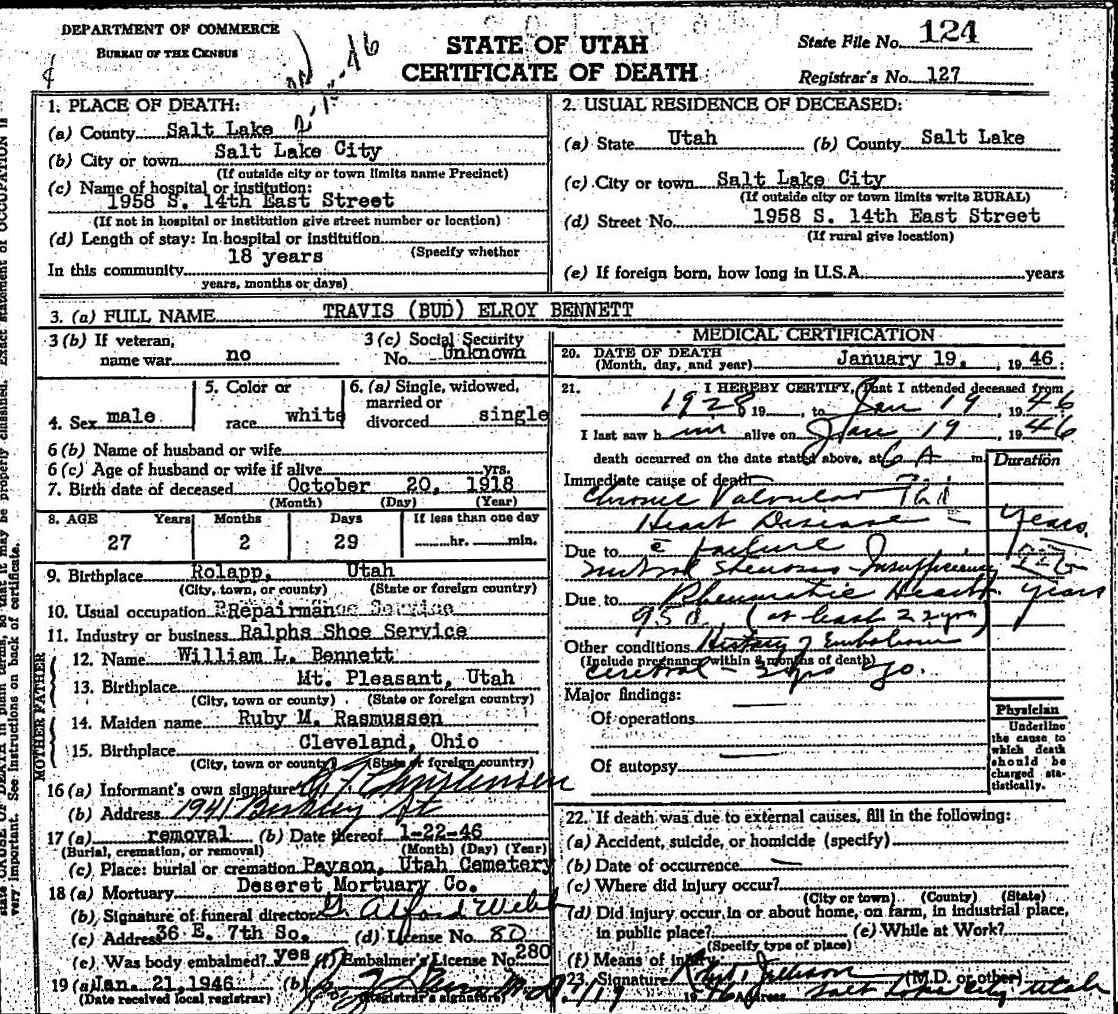 DEPARTMENT OF COMMERCE
BUREAU OF THE CENSUS
STATE OF UTAH
CERTIFICATE OF DEATH
State File No. 124
Registrar's No. 127
1. PLACE OF DEATH:
(a) County Salt Lake
(b) City or town Salt Lake City
(If outside city or town limits name Precinct)
(c) Name of hospital or institution:
1958 S. 14th East Street
(If not in hospital or institution give street number or location)
(d) Length of stay: In hospital or institution
18 years (Specify whether
In this community
years, months or days)
2. USUAL RESIDENCE OF DECEASED:
(a) State Utah (b) County Salt Lake
(c) City or town Salt Lake City
(If outside city or town limits write RURAL)
(d) Street No. 1958 S. 14th East Street
(If rural give location)
(e) If foreign born, how long in U.S.A. years
3. (a) FULL NAME TRAVIS (BUD) ELROY BENNETT
3 (b) If veteran, name war no
3 (c) Social Security No. Unknown
4. Sex male
5. Color or race white
6. (a) Single, widowed, married or divorced single
6 (b) Name of husband or wife
6 (c) Age of husband or wife if alive yrs.
7. Birth date of deceased October 20, 1918
(Month) (Day) (Year)
8. AGE Years Months Days If less than one day
27 2 29 hr. min.
9. Birthplace Rolapp, Utah
(City, town, or county) (State or foreign country)
10. Usual occupation Repairman Service
11. Industry or business Ralphs Shoe Service
FATHER
12. Name William L. Bennett
13. Birthplace Mt. Pleasant, Utah
(City, town or county) (State or foreign country)
MOTHER
14. Maiden name Ruby M. Rasmussen
15. Birthplace Cleveland, Ohio
(City, town or county) (State or foreign country)
16 (a) Informant's own signature Christensen
(b) Address 1941 Berkley St
17 (a) removal (b) Date thereof 1-22-46
(Burial, cremation, or removal) (Month) (Day) (Year)
(c) Place: burial or cremation Payson, Utah Cemetery
18 (a) Mortuary Deseret Mortuary Co.
(b) Signature of funeral director G. Alford Webb
(c) Address 36 E. 7th So. (d) License No. 80
(e) Was body embalmed? yes (f) Embalmer's License No. 280
19 (a) Jan. 21, 1946 (b)
(Date received local registrar) (Registrar's signature)
MEDICAL CERTIFICATION
20. DATE OF DEATH
(Month, day, and year) January 19, 1946
21. I HEREBY CERTIFY, that I attended deceased from
1928, 19 , to Jan 19, 1946
I last saw him alive on Jan 19 1946
death occurred on the date stated above, at 6 A m.
Duration
Immediate cause of death
Chronic Valvular
Heart Disease - years
Due to c failure
mitral stenosis - Insufficiency
Due to Rheumatic Heart years
(at least 22 yrs)
Other conditions History of Embolism
(Include pregnancy within 3 months of death)
cerebral -
Major findings:
Of operations
Of autopsy
Physician
Underline
the cause to
which death
should be
charged sta-
tistically.
22. If death was due to external causes, fill in the following:
(a) Accident, suicide, or homicide (specify)
(b) Date of occurrence
(c) Where did injury occur?
(City or town) (County) (State)
(d) Did injury occur in or about home, on farm, in industrial place,
in public place? (e) While at Work?
(Specify type of place)
(f) Means of injury
23. Signature (M.D. or other)
1/19 1946 Address Salt Lake City Utah